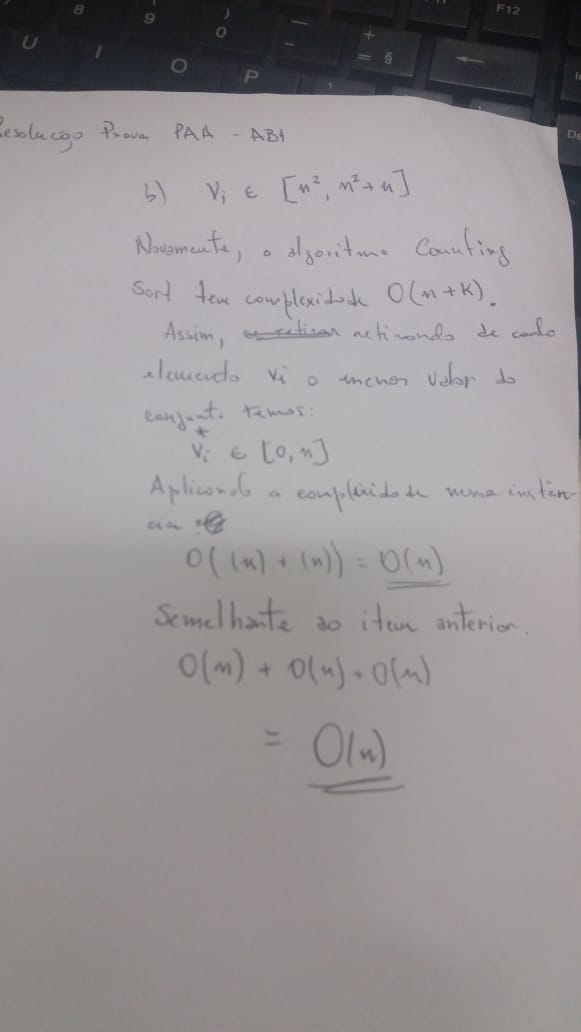 8
9
)
0
—
-
+
= §
F12
U
I
O
P
Resolucao Prova PAA - AB1
b) Vi ∈ [n², n²+n]
Novamente, o algoritmo Counting
Sort tem complexidade O(n+k).
Assim, se retirar retirando de cada
elemento Vi o menor valor do
conjunto temos:
Vi* ∈ [0, n]
Aplicando a complexidade nessa instân-
cia:
O((n) + (n)) = O(n)
Semelhante ao item anterior.
O(n) + O(n) + O(n)
= O(n)